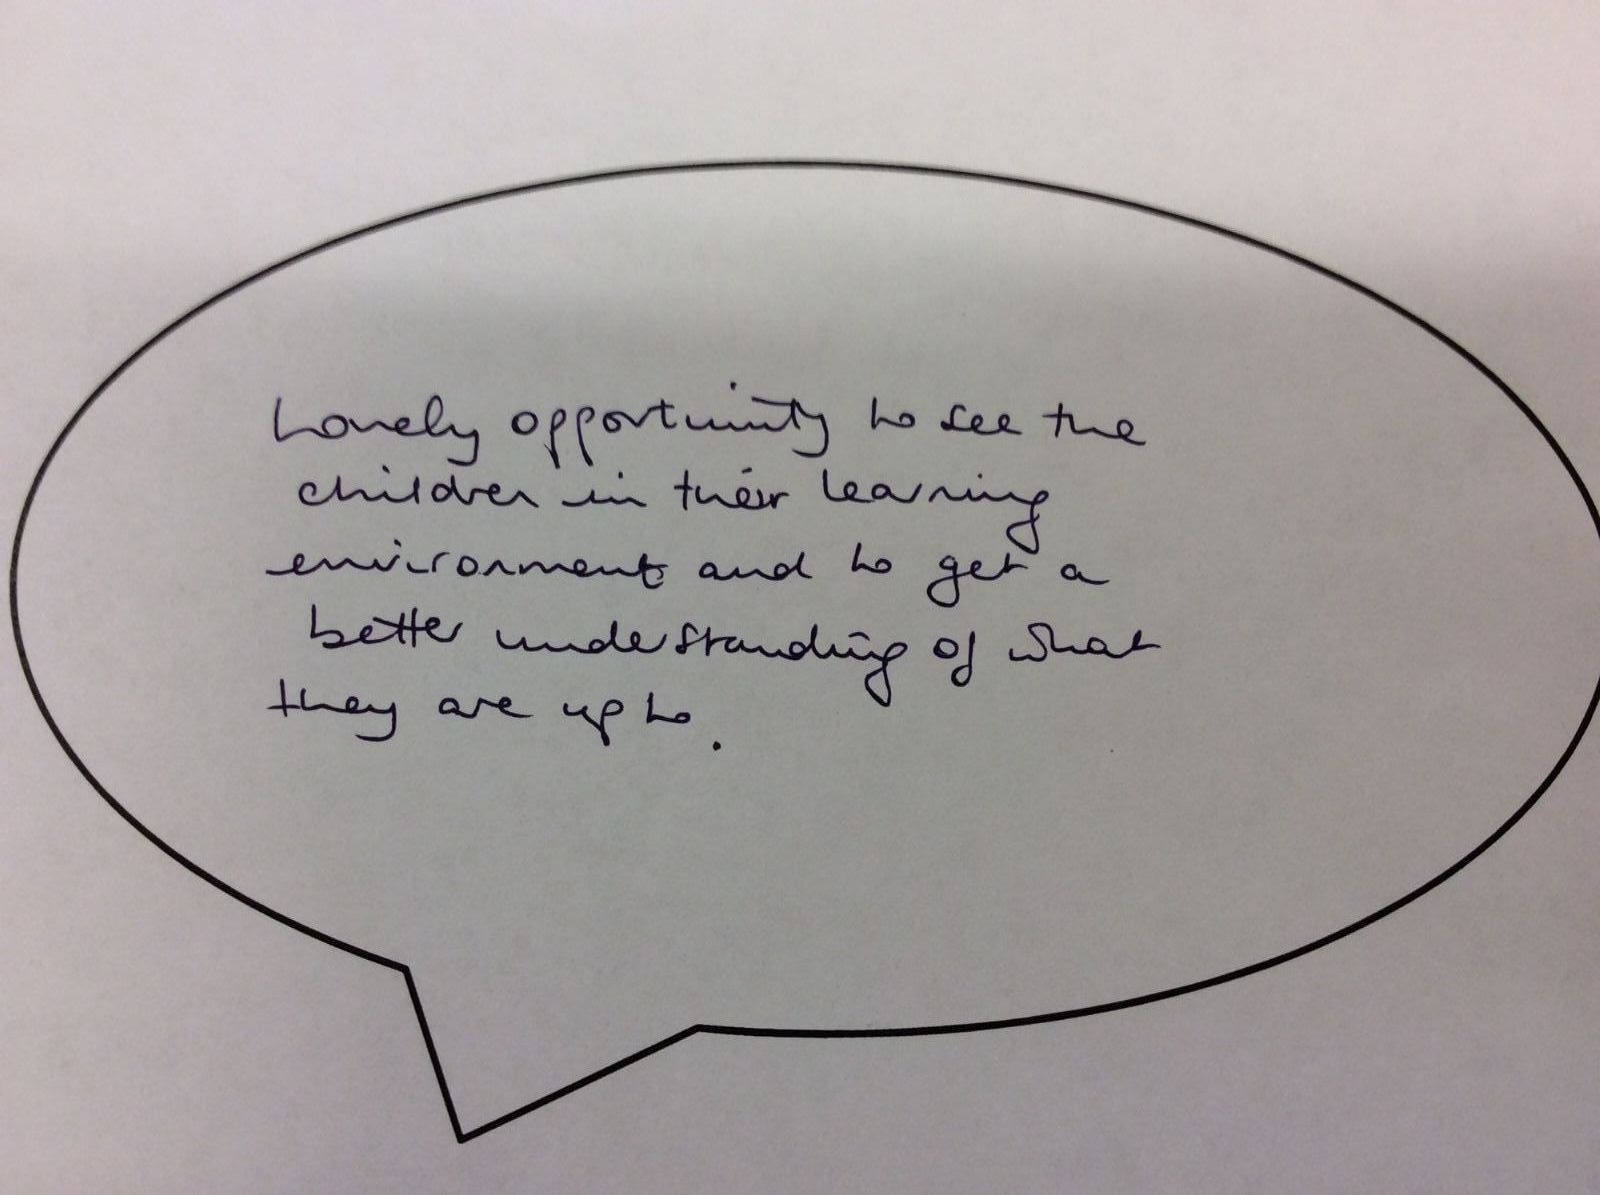 Lovely opportunity to see the
children in their learning
environment and to get a
better understanding of what
they are up to.